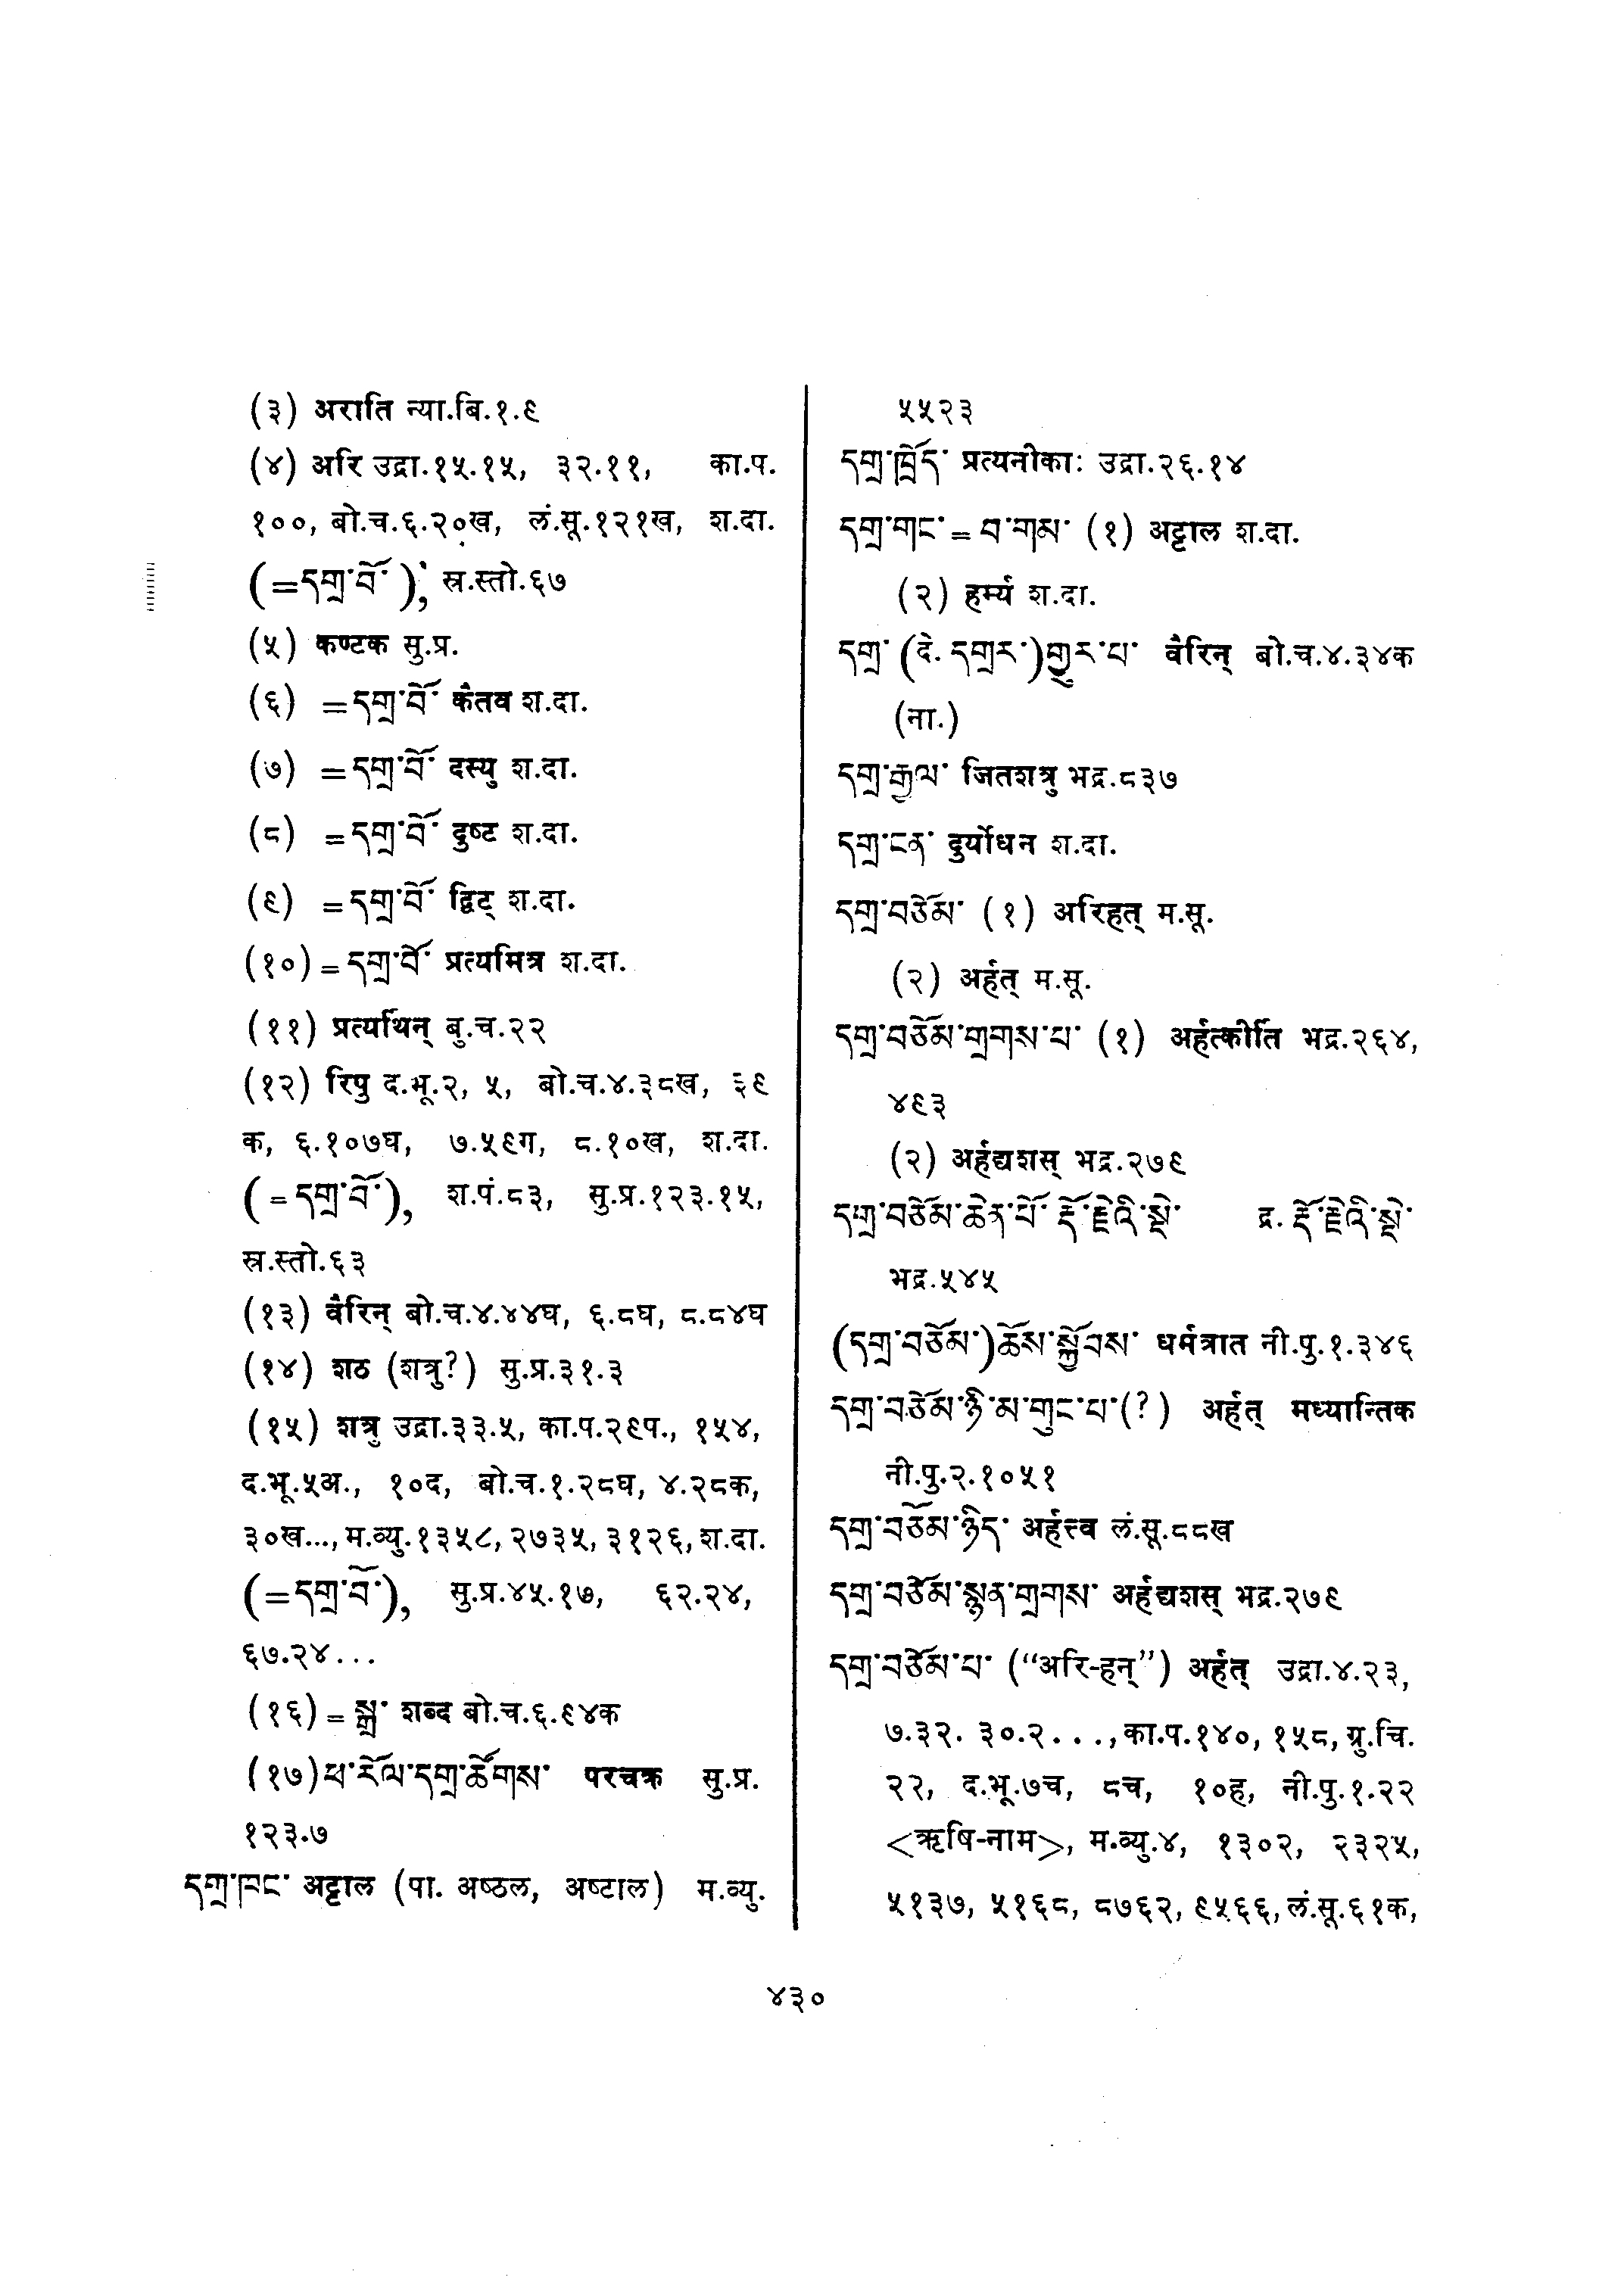 (३) अराति न्या.बि.१.९
(४) अरि उद्रा.१५.१५, ३२.११, का.प.
१००, बो.च.६.२०ख, लं.सू.१२१ख, श.दा.
(=དགྲ་བོ་), स्र.स्तो.६७
(५) कण्टक सु.प्र.
(६) =དགྲ་བོ་ कैतव श.दा.
(७) =དགྲ་བོ་ दस्यु श.दा.
(८) =དགྲ་བོ་ दुष्ट श.दा.
(९) =དགྲ་བོ་ द्विट् श.दा.
(१०)=དགྲ་བོ་ प्रत्यमित्र श.दा.
(११) प्रत्यर्थिन् बु.च.२२
(१२) रिपु द.भू.२, ५, बो.च.४.३८ख, ३९
क, ६.१०७घ, ७.५९ग, ८.१०ख, श.दा.
(=དགྲ་བོ་), श.पं.८३, सु.प्र.१२३.१५,
स्र.स्तो.६३
(१३) वैरिन् बो.च.४.४४घ, ६.८घ, ८.८४घ
(१४) शठ (शत्रु?) सु.प्र.३१.३
(१५) शत्रु उद्रा.३३.५, का.प.२९प., १५४,
द.भू.५अ., १०द, बो.च.१.२८घ, ४.२८क,
३०ख..., म.व्यु.१३५८, २७३५, ३१२६, श.दा.
(=དགྲ་བོ་), सु.प्र.४५.१७, ६२.२४,
६७.२४...
(१६)=སྒྲ་ शब्द बो.च.६.९४क
(१७)ཕ་རོལ་དགྲ་ཚོགས་ परचक्र सु.प्र.
१२३.७
དགྲ་ཁང་ अट्टाल (पा. अष्ठल, अष्टाल) म.व्यु.
५५२३
དགྲ་ཁྲོད་ प्रत्यनीकाः उद्रा.२६.१४
དགྲ་གང་=བ་གམ་ (१) अट्टाल श.दा.
(२) हर्म्य श.दा.
དགྲ་(दे. དགྲར་)གྱུར་པ་ वैरिन् बो.च.४.३४क
(ना.)
དགྲ་རྒྱལ་ जितशत्रु भद्र.८३७
དགྲ་ངན་ दुर्योधन श.दा.
དགྲ་བཅོམ་ (१) अरिहत् म.सू.
(२) अर्हत् म.सू.
དགྲ་བཅོམ་གྲགས་པ་ (१) अर्हत्कीर्ति भद्र.२६४,
४९३
(२) अर्हद्यशस् भद्र.२७९
དགྲ་བཅོམ་ཆེན་པོ་རྡོ་རྗེའི་སྡེ་ द्र. རྡོ་རྗེའི་སྡེ་
भद्र.५४५
(དགྲ་བཅོམ་)ཆོས་སྐྱོབས་ धर्मत्रात नी.पु.१.३४६
དགྲ་བཅོམ་ཉི་མ་གུང་པ་(?) अर्हत् मध्यान्तिक
नी.पु.२.१०५१
དགྲ་བཅོམ་ཉིད་ अर्हत्त्व लं.सू.८८ख
དགྲ་བཅོམ་སྙན་གྲགས་ अर्हद्यशस् भद्र.२७९
དགྲ་བཅོམ་པ་ (“अरि-हन्”) अर्हत् उद्रा.४.२३,
७.३२. ३०.२..., का.प.१४०, १५८, ग्रु.चि.
२२, द.भू.७च, ८च, १०ह, नी.पु.१.२२
<ऋषि-नाम>, म.व्यु.४, १३०२, २३२५,
५१३७, ५१६८, ८७६२, ९५६६, लं.सू.६१क,
४३०